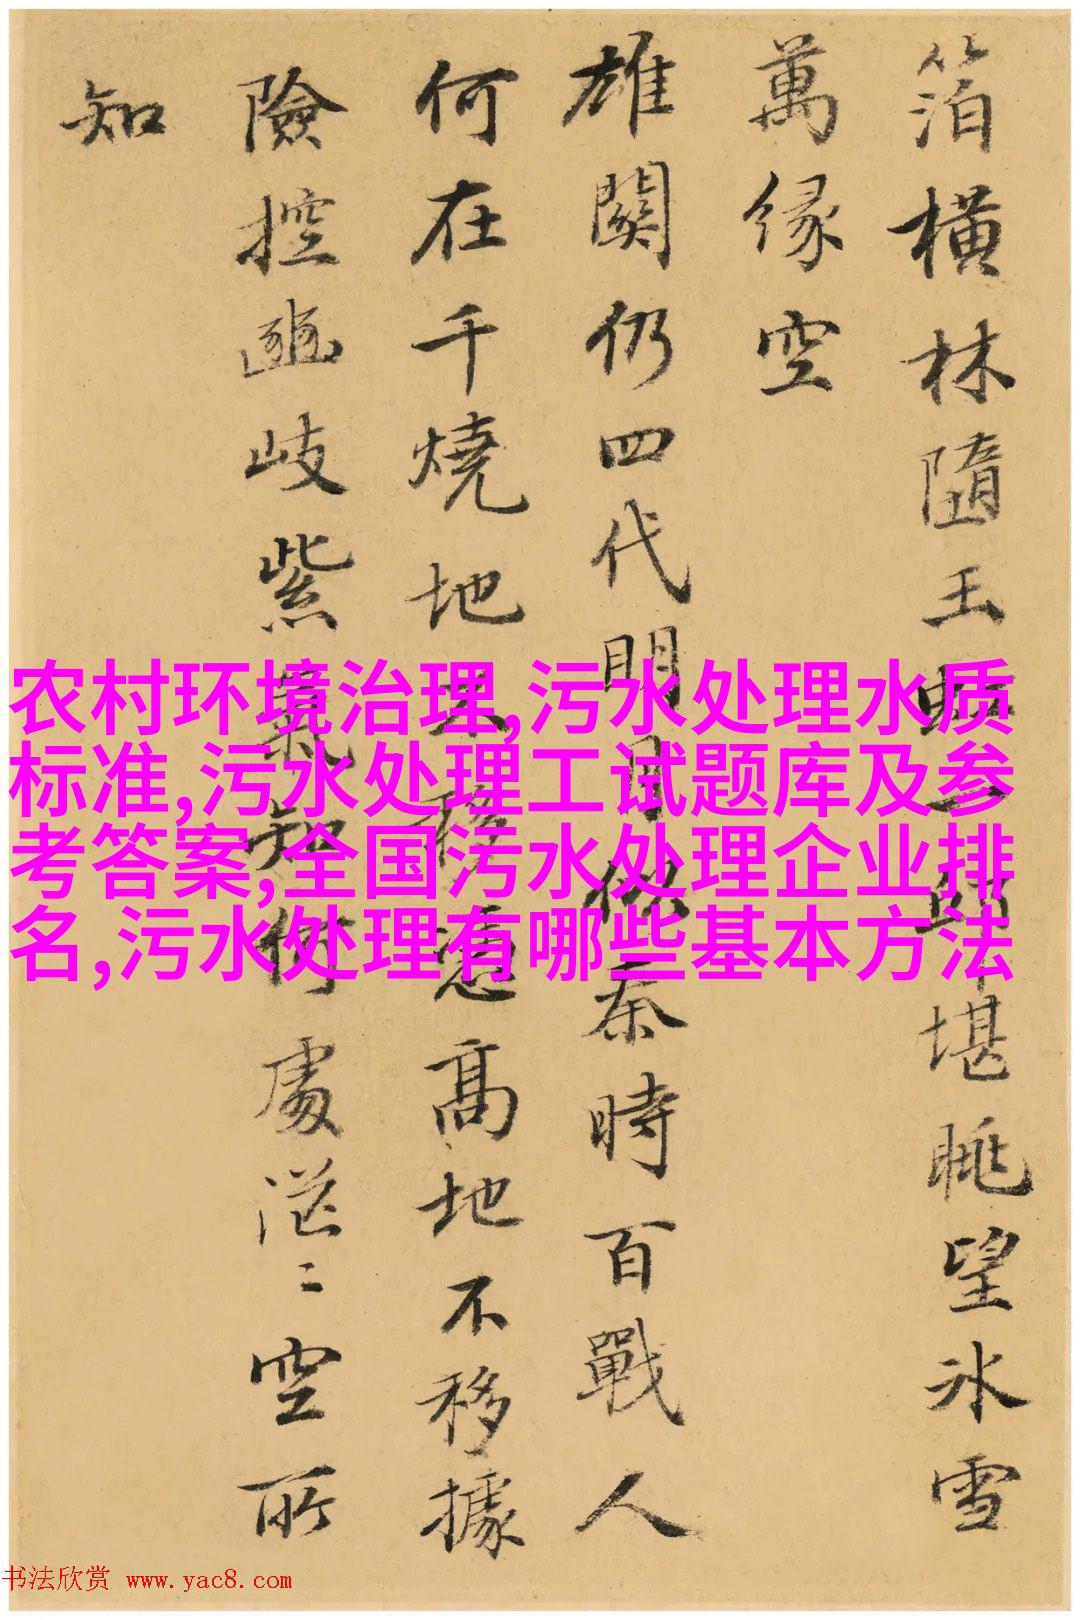 箔橫林隨玉虹一師堪眺望冰雪
萬緣空
雄關仍四代明月似秦時百戰人
何在千燒地未移急高地不移據
險控豳岐紫氣知何處茫〻空所
知
农村环境治理,污水处理水质
标准,污水处理工试题库及参
考答案,全国污水处理企业排
名,污水处理有哪些基本方法
书法欣赏 www.yac8.com